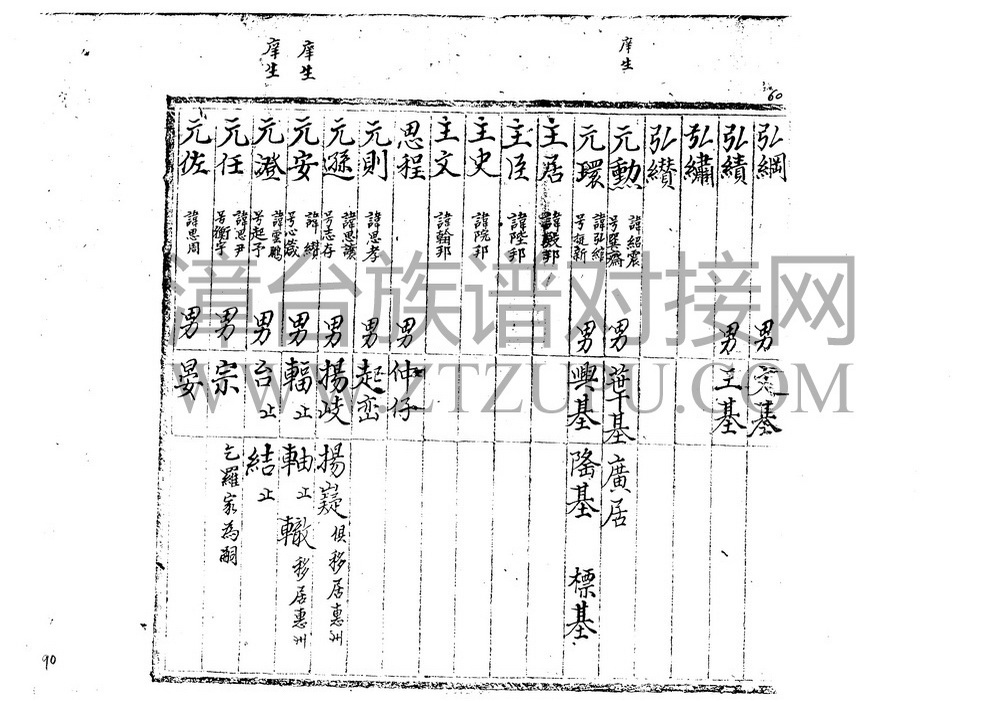 60
弘綱 男 基
弘績 男 玉基
弘繡
弘纉
庠生
元勲 諱紹震 号 齋 男 華基 廣居
元環 諱弘維 号挺新 男 興基 隆基 標基
主居 諱殿邦
主臣 諱陞邦
主史 諱阮邦
主文 諱翰邦
思程 男 仲仔
元則 諱思孝 男 起巒
元遜 諱思讓 号志存 男 揚岐 揚嶷 俱移居惠州
庠生
元安 諱纉 号心箴 男 輻止 軸止 轍 移居惠州
庠生
元澄 諱雲鵬 号起予 男 台止 結止
元任 諱思尹 号衡宇 男 宗 乞羅家為嗣
元佐 諱思周 男 晏
90
漳台族谱对接网
WWW.ZTZUPU.COM